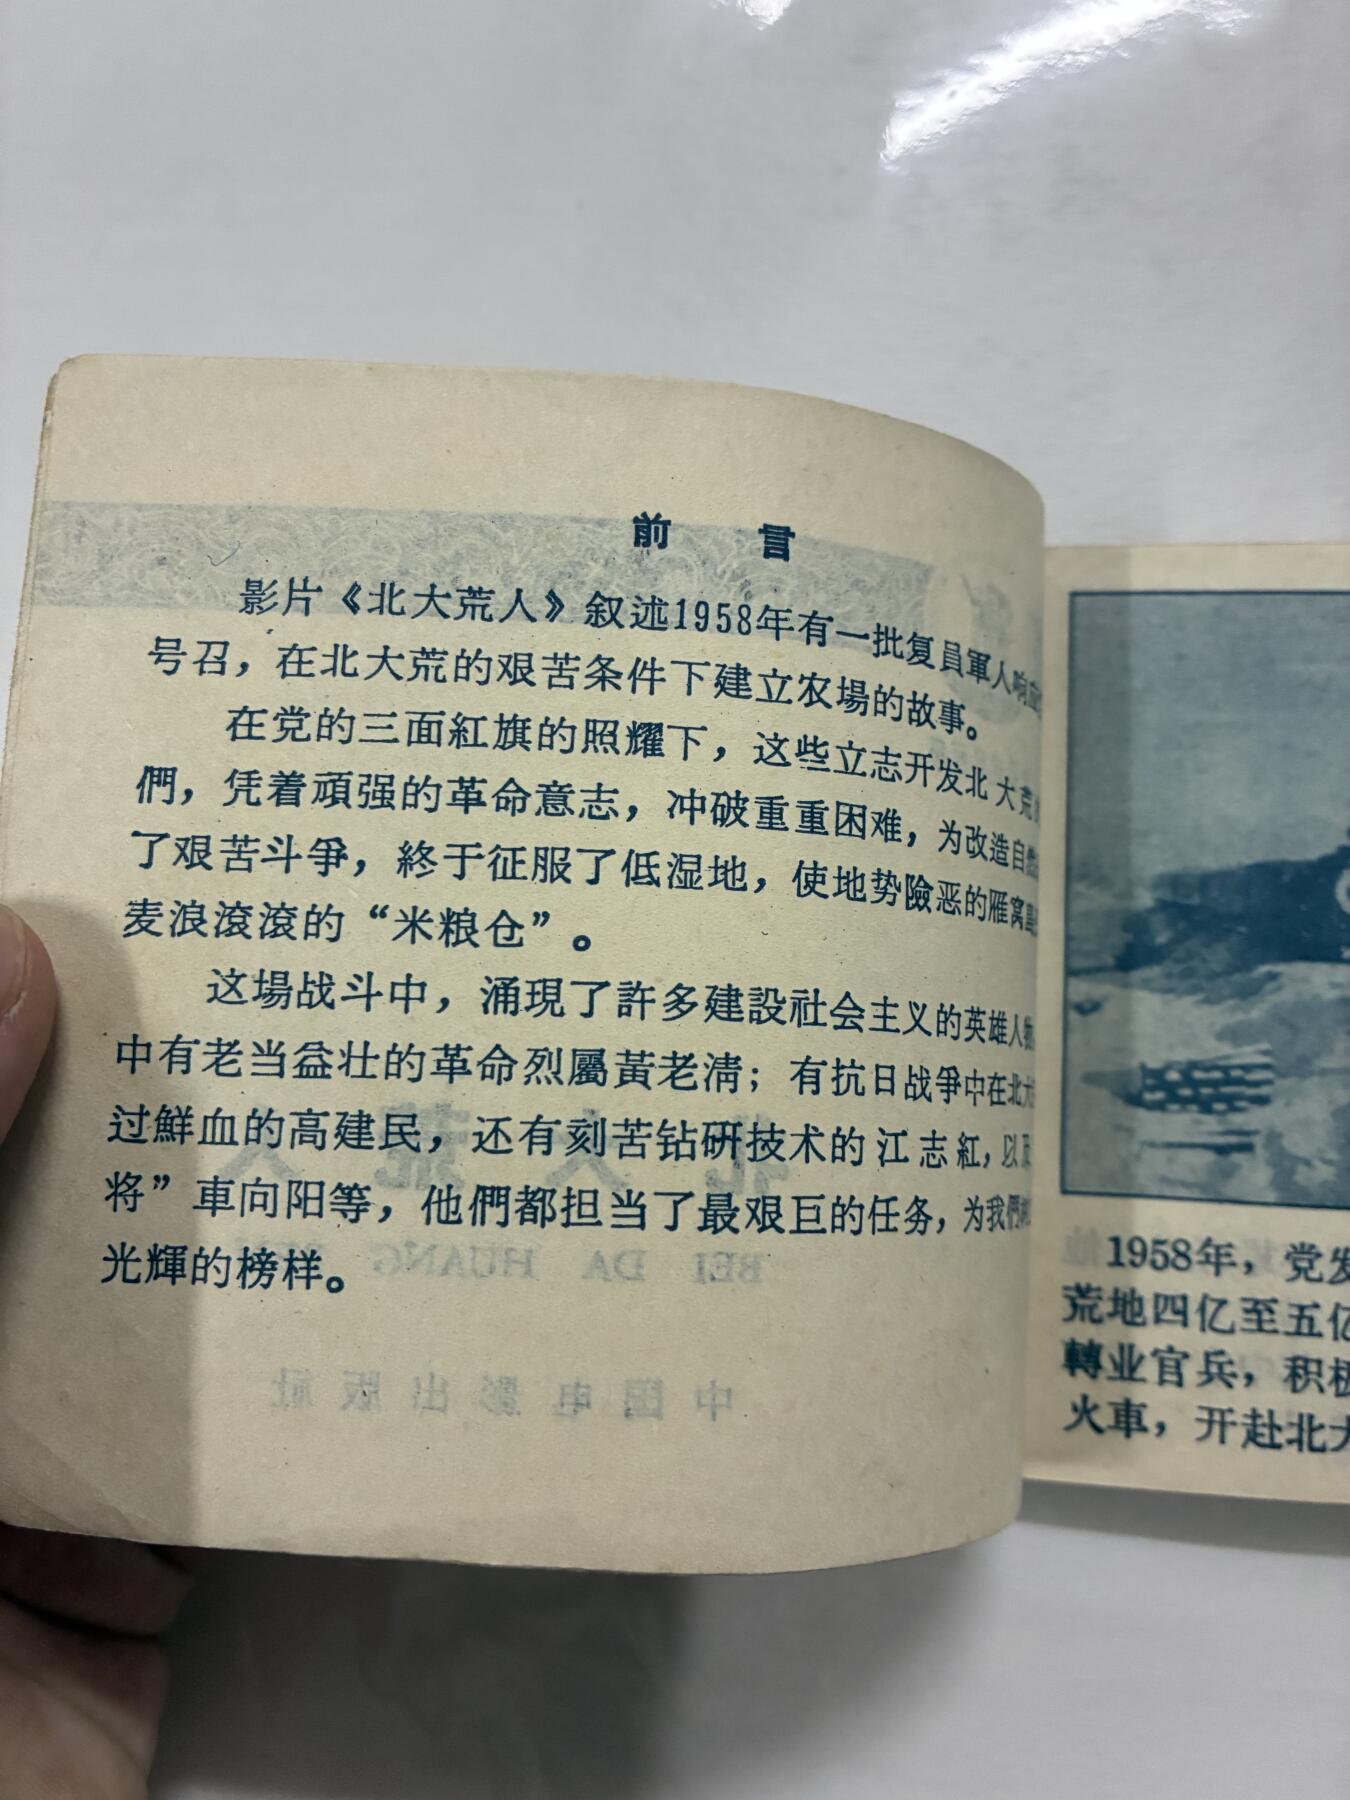 前言
影片《北大荒人》叙述1958年有一批复員軍人响应
号召，在北大荒的艰苦条件下建立农場的故事。
在党的三面紅旗的照耀下，这些立志开发北大荒
們，凭着頑强的革命意志，冲破重重困难，为改造自然
了艰苦斗爭，終于征服了低湿地，使地势險恶的雁窝島
麦浪滾滾的“米粮仓”。
这場战斗中，涌現了許多建設社会主义的英雄人物
中有老当益壮的革命烈屬黃老淸；有抗日战爭中在北大
过鮮血的高建民，还有刻苦钻硏技术的江志紅，以及
将”車向阳等，他們都担当了最艰巨的任务，为我們
光輝的榜样。
1958年，党发
荒地四亿至五亿
轉业官兵，积极
火車，开赴北大